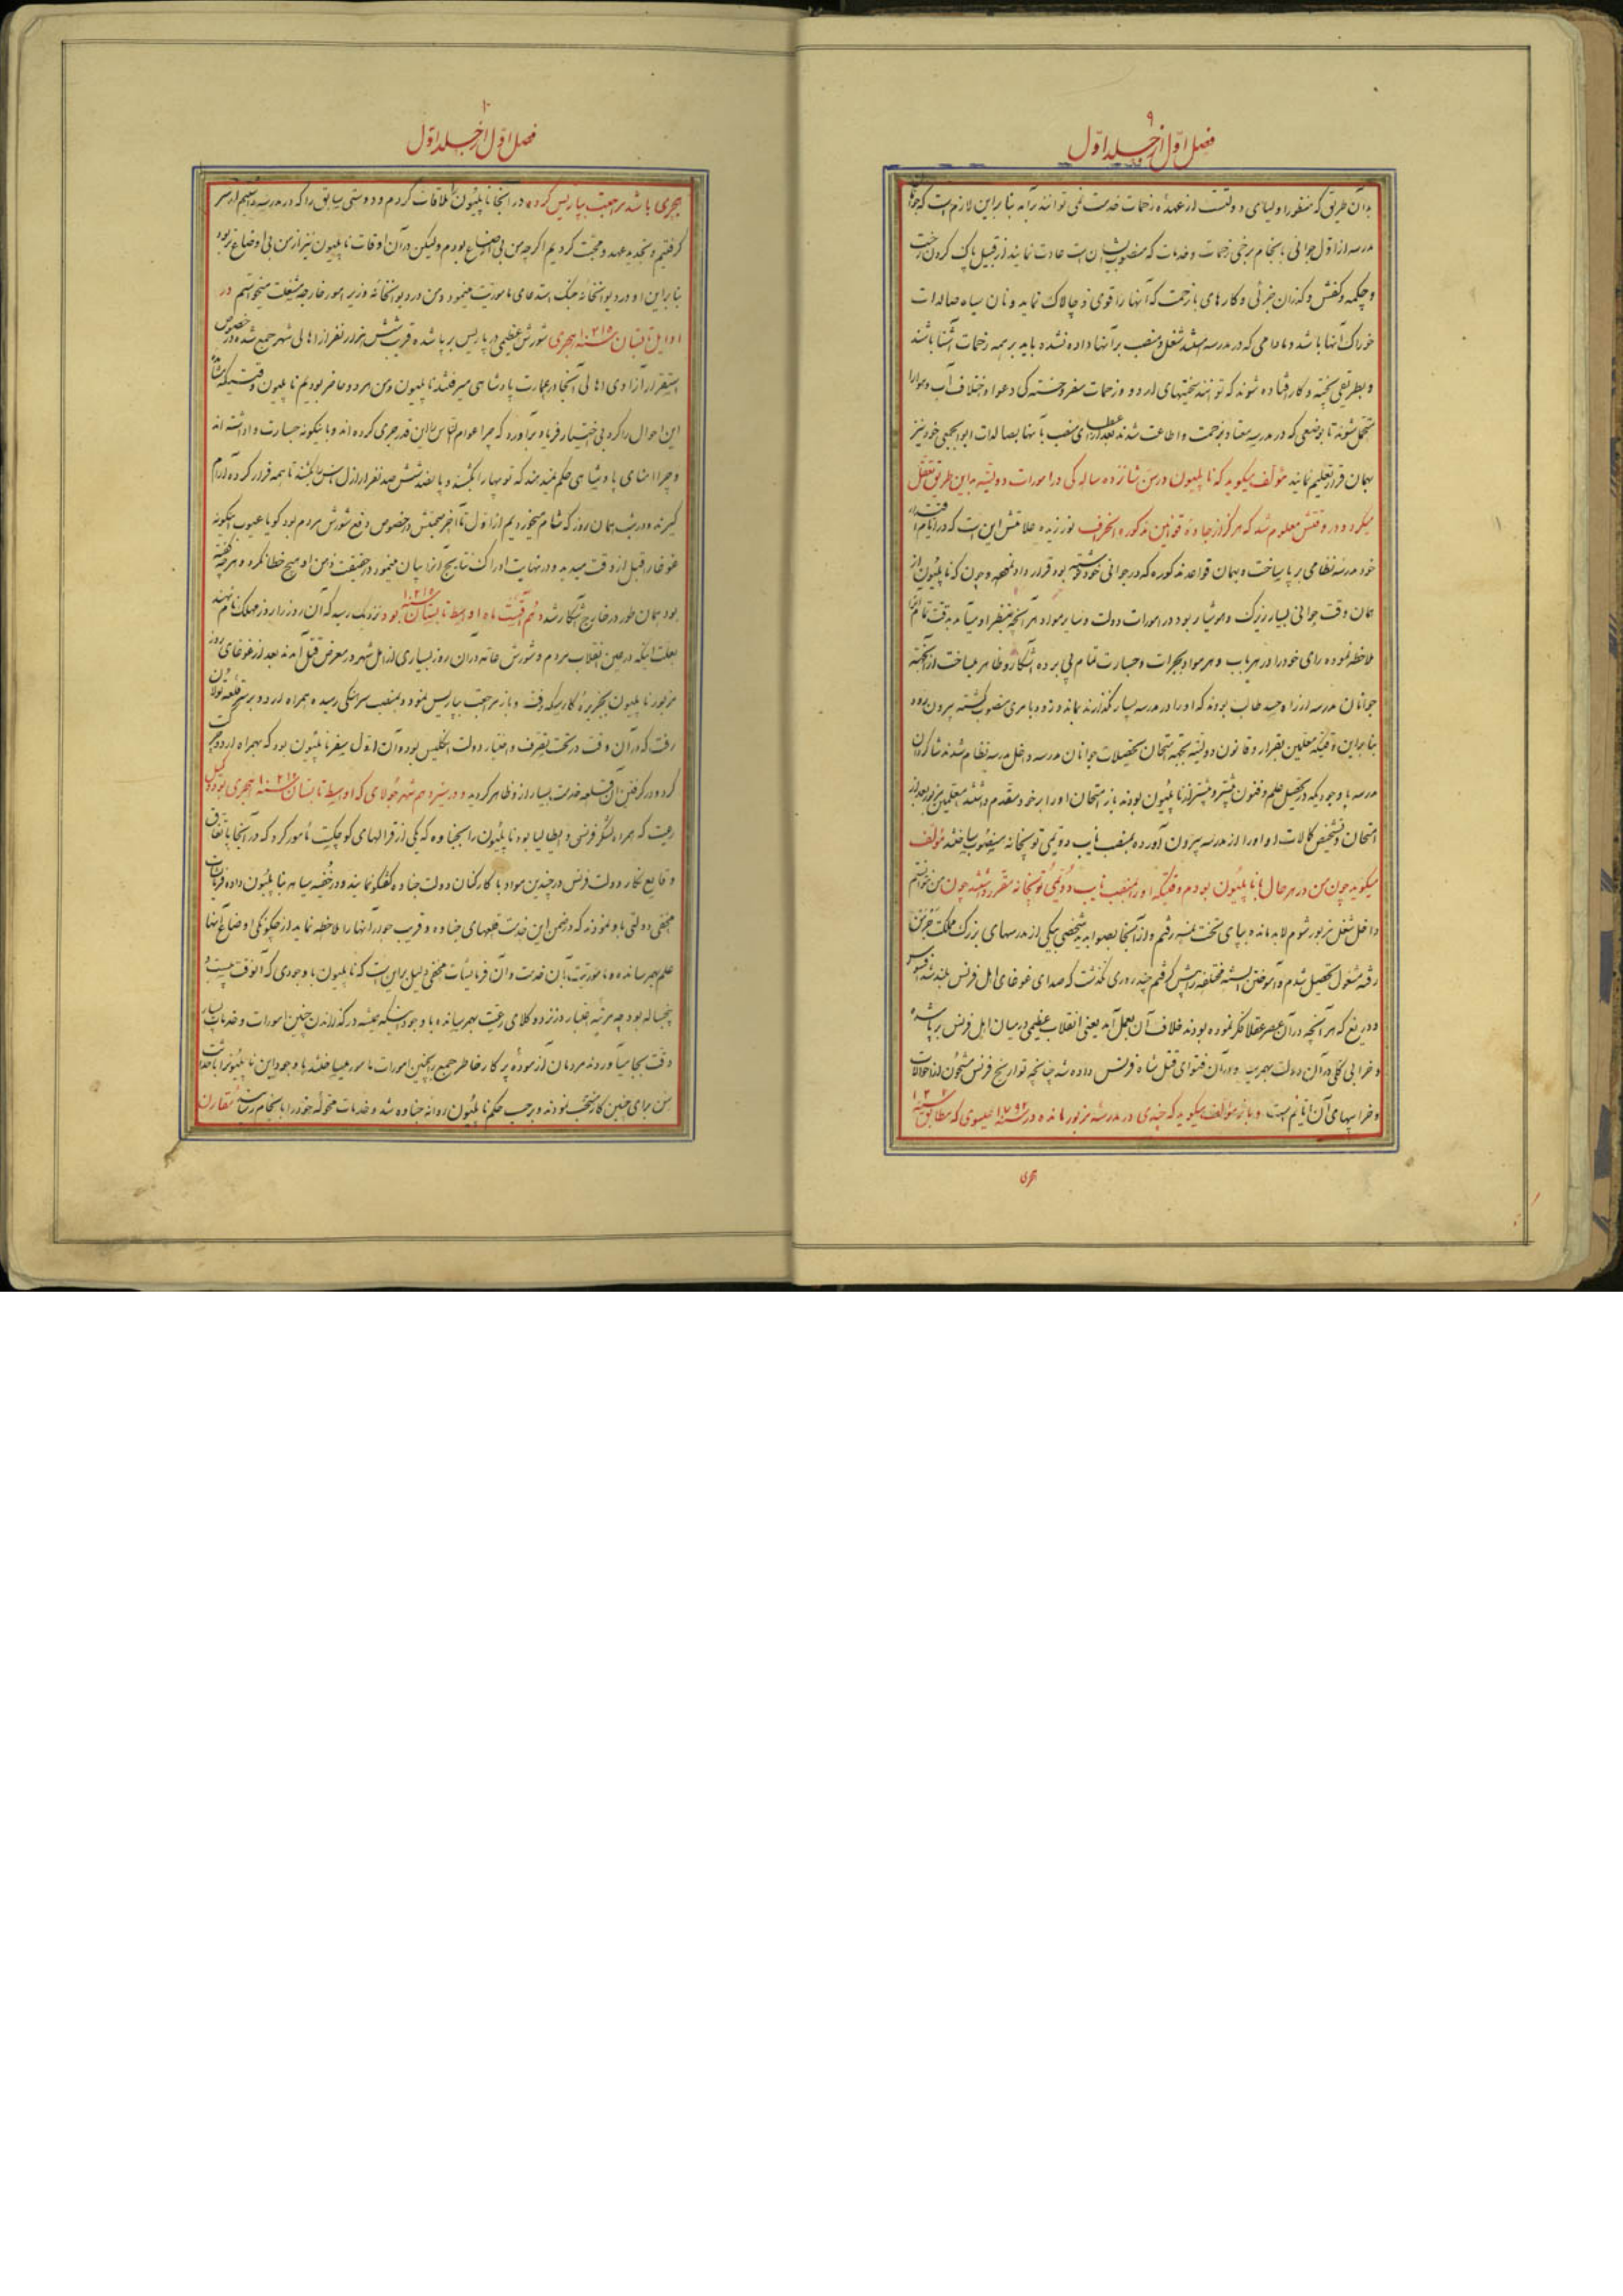 ۹
فصل اول از جلد اول
بدآن طریق که منظور اولیای دولتست از عهدهٔ زحمات خدمت نمی توانند برآید بنا براین لازم است که جوانان
مدرسه از اول جوانی بانجام برخی زحمات و خدمات که منصوب بایشان است عادت نمایند از قبیل پاک کردن رخت
و چکمه و کفش و گذران جزئی و کارهای با زحمت که آنها را قوی و چالاک نماید و نان سیاه صالدات
خوراک آنها باشد و مادامی که در مدرسه هستند شغل و منصب برآنها داده نشده باید بر همه زحمات آشنا باشند
و بطریقی پخته و کار افتاده شوند که توانند سختیهای اردو و زحمات سفر و خستگی دعوا و اختلاف آب و هوا را
متحمل شوند تا بوضعی که در مدرسه معتاد بزحمت و اطاعت شدند بعد از اعطای منصب بآنها بصالدات ابوابجمعی خود نیز
بهمان قرار تعلیم نمایند مؤلف میگوید که ناپلیون در سن شانزده سالگی در امورات دولتیه باین طریق تعقل
میکرد و در وقتش معلوم شد که هرگز از جادهٔ قوانین مذکوره انحراف نورزیده علامتش این است که در ایام اقتدار
خود مدرسه نظامی برپا ساخت و بهمان قواعد مذکوره که در جوانی خود نوشته بود قرار داد و چون که ناپلیون از
همان وقت جوانی بسیار زیرک و هوشیار بود و در امورات دولت و سایر مواد هر آنچه بنظر او میآمد بدقت تمام آنرا
ملاحظه نموده رای خود را در هر باب و هر مواد بجرات و جسارت تمام پی برده آشکار و ظاهر میساخت از آنجهة
جوانان مدرسه از راه حسد طالب بودند که او را در مدرسه بسیار نگذارند بماند و زود بامری منصوب گشته بیرون رود
بنا براین وقتیکه معلمین بقرار و قانون دولتیه بجهة امتحان تحصیلات جوانان مدرسه داخل مدرسه نظام شدند شاگردان
مدرسه با وجودیکه در تحصیل علم و فنون بیشتر و پیشتر از ناپلیون بودند باز امتحان او را بر خود مقدم داشتند معلمین مزبور بعد از
امتحان و تشخیص کمالات او او را از مدرسه بیرون آورده بمنصب نایب دویمی توپخانه منصوب ساختند مؤلف
میگوید چون من در هر حال با ناپلیون بودم وقتیکه او را بمنصب نایب دویمی توپخانه مقرر داشتند چون من نخواستم
داخل شغل مزبور شوم لابد مانده بپای تخت نمسه رفتم و از آنجا بصوابدید شخصی بیکی از مدرسهای بزرک مملکت جرمن
رفته مشغول تحصیل شدم و آموختن السنه مختلفه را پیش گرفتم چند روزی نگذشت که صدای غوغای اهل فرنس بلند شد افسوس
و دریغ که هر آنچه در آن عصر عقلا فکر نموده بودند خلاف آن بعمل آمد یعنی انقلاب عظیمی در میان اهل فرنس برپا شده
و خرابی کلی در آن دولت بهمرسید و در آن فتوای قتل شاه فرنس داده شد چنانچه تواریخ فرنس مشحون از احوالات
و خرابیهای آن ایام است و باز مؤلف میگوید که چندی در مدرسهٔ مزبور مانده در سنه ۱۷۹۲ عیسوی که مطابق سنه
هجری
۱۰
فصل اول از جلد اول
هجری باشد مراجعت بپاریس کرده در آنجا ناپلیون را ملاقات کردم و دوستی سابق را که در مدرسه داشتیم از سر
گرفتیم و تجدید عهد و محبت کردیم اگرچه من بی اوضاع بودم ولیکن در آن اوقات ناپلیون نیز از من بی اوضاع تر بود
بنا براین او در دیوانخانه جنگ استدعای مأموریت مینمود و من در دیوانخانه وزیر امور خارجه شغلت میخواستم در
اوایل تابستان سنه ۱۲۱۵ هجری شورش عظیمی در پاریس برپا شده قریب شش هزار نفر از اهالی شهر جمع شده در خصوص
استقرار آزادی اهالی آنجا در عمارت پادشاهی میرفتند ناپلیون و من هر دو حاضر بودیم ناپلیون وقتیکه مشاهده
این احوال را کرد بی اختیار فریاد برآورد که چرا عوام الناس را این قدر جری کرده اند و باینگونه جسارت واداشته اند
و چرا امنای پادشاهی حکم نمیدهند که توپها را بکشند و پانصد ششصد نفر از ارازل ناس را بکشند تا همه فرار کرده آرام
گیرند و در شب همان روز که شام میخوردیم از اول تا آخر صحبتش در خصوص دفع شورش مردم بود گویا عیوب اینگونه
غوغا را قبل از وقت میدید و در نهایت ادراک نتایج آنرا بیان مینمود در حقیقت ذهن او هیچ خطا نکرد و هرچه گفته
بود همان طور در خارج آشکار شد دهم اقست ماه اواسط تابستان سنه ۱۲۱۵ بود نزدیک رسید که آن روز را روز مهلک نام نهند
بعلت اینکه در حین انقلاب مردم و شورش عامه در آن روز بسیاری از اهل شهر در معرض قتل آمدند بعد از غوغای روز
مزبور ناپلیون بجزیره کارسکه رفت و باز مراجعت بپاریس نمود و بمنصب سرهنگی رسیده همراه اردو بر سر قلعه تولان
رفت که در آن وقت در تحت تصرف و اختیار دولت انگلیس بود و آن اول سفر ناپلیون بود که بهمراه اردو حرکت
کرد و در گرفتن آن قلعه خدمت بسیار از او ظاهر گردید و در سیزدهم شهر جولای که اواسط تابستان سنه ۱۲۱۶ هجری بود وکیل
رعیت که همراه لشکر فرنسی و ایطالیا بود ناپلیون را بجناوه که یکی از قرالهای کوچکیست مأمور کرد که در آنجا باتفاق
وقایع نگار دولت فرنس در چندین مواد با کارکنان دولت جناوه گفتگو نمایند و در خفیه سیاهه بناپلیون داده فرمایشات
مخفی دولتی باو نمودند که در ضمن این خدمت قلعهای جناوه و قریب جوار آنها را ملاحظه نماید از چگونگی اوضاع آنها
علم بهم رسانده و مأموریت بآن خدمت و آن فرمایشات مخفی دلیل براین است که ناپلیون با وجودی که آنوقت بیست و
پنجساله بود چه مرتبه اعتبار در نزد وکلای رعیت بهم رسانده با وجود اینکه همیشه در گذراندن چنین امورات و خدمات بسیار
دقت بجا میآوردند مردمان آزموده پر کار خاطر جمع را بچنین امورات مأمور میساختند با وجود این ناپلیونرا با حداثت
سن برای چنین کار منتخب نمودند و برحسب حکم ناپلیون روانه جناوه شد و خدمات محوله خود را بانجام رسانید مقارن